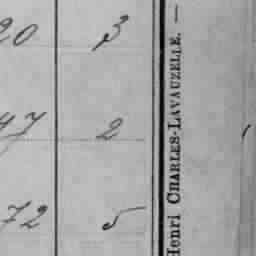 20 3
47 2
72 5
Henri CHARLES-LAVAUZELLE. —